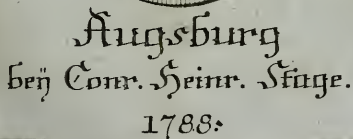 Augsburg
beÿ Conr. Heinr. Stage.
1788.